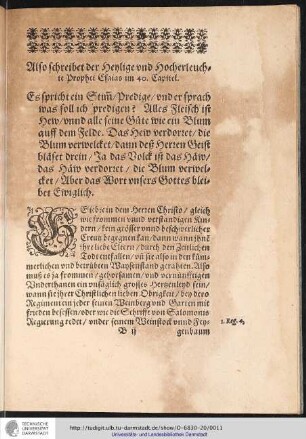 Also schreibet der Heylige vnd Hocherleuch-
te Prophet Esaias im 40. Capitel.
Es spricht ein Stim̃/Predige/ vnd er sprach
was soll ich predigen? Alles Fleisch ist
Hew/vnnd alle seine Güte wie ein Blum
auff dem Felde. Das Hew verdorret/die
Blum verwelcket/dann deß Herren Geist
bläset drein/ Ja das Volck ist das Häw/
das Häw verdorret/ die Blum verwel-
cket/Aber das Wort vnsers Gottes blei-
bet Ewiglich.
Liebe in dem Herren Christo/ gleich
wie frommen vnnd verstandigen Kin-
dern/ kein grösser vnnd beschwerlicher
Creutz begegnen kan/ dann wann jhnẽ
jhre liebe Eltern/ durch den Zeitlichen
Todt entfallen/ vñ sie also in den küm-
merlichen vnd betrübten Waysenstand gerahten. Also
muß es ja frommen/ gehorsamen/ vnd vernünfftigen
Vnderthanen ein vnsäglich grosses Hertzenleyd sein/
wann sie jhrer Christlichen lieben Obrigkeit/ bey dero
Regiment ein jeder seinen Weinberg vnd Garten mit
frieden besessen/oder wie die Schrifft von Salomonis
Regierung redet/ vnder seinem Weinstock vnnd Fey-
1. Reg. 4.
B ij
genbaum
TECHNISCHE
UNIVERSITÄT
DARMSTADT
http://tudigit.ulb.tu-darmstadt.de/show/O-6830-20/0013
Universitäts- und Landesbibliothek Darmstadt